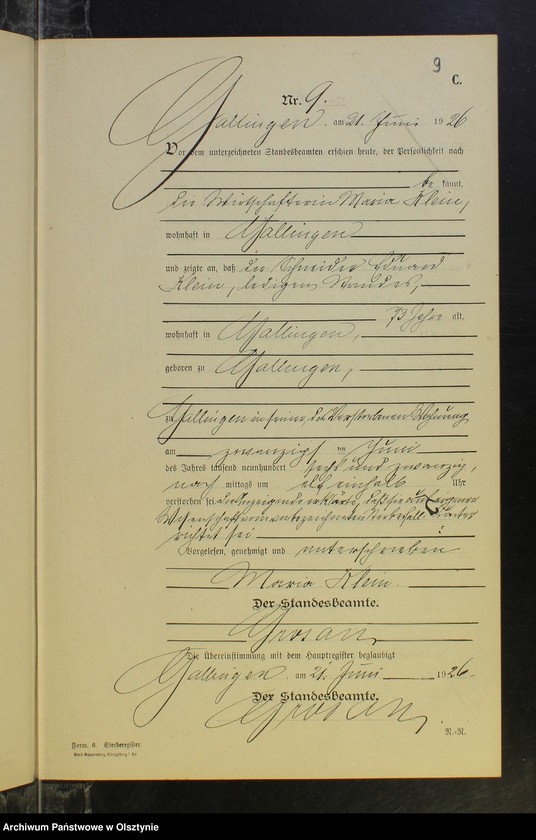 9
C.
Nr. 9.
Gallingen, am 21. Juni 1926
Vor dem unterzeichneten Standesbeamten erschien heute, der Persönlichkeit nach
be kannt,
die Wirtschafterin Maria Klein,
wohnhaft in Gallingen
und zeigte an, daß der Schneider Eduard
Klein, ledigen Standes,
73 Jahre alt,
wohnhaft in Gallingen,
geboren zu Gallingen,
zu Gallingen in seiner, des Verstorbenen Wohnung
am zwanzigsten Juni
des Jahres tausend neunhundert sechs und zwanzig,
nach mittags um elf einhalb Uhr
verstorben sei. Die Anzeigende erklärte, daß sie aus eigener
Wissenschaft von unterzeichneten Sterbefall unter
richtet sei.
Vorgelesen, genehmigt und unterschrieben
Maria Klein.
Der Standesbeamte.
Grosan,
Die Übereinstimmung mit dem Hauptregister beglaubigt
Gallingen, am 21. Juni 1926.
Der Standesbeamte.
Grosan,
R.-R.
Form. C. Sterberegister.
Archiwum Państwowe w Olsztynie